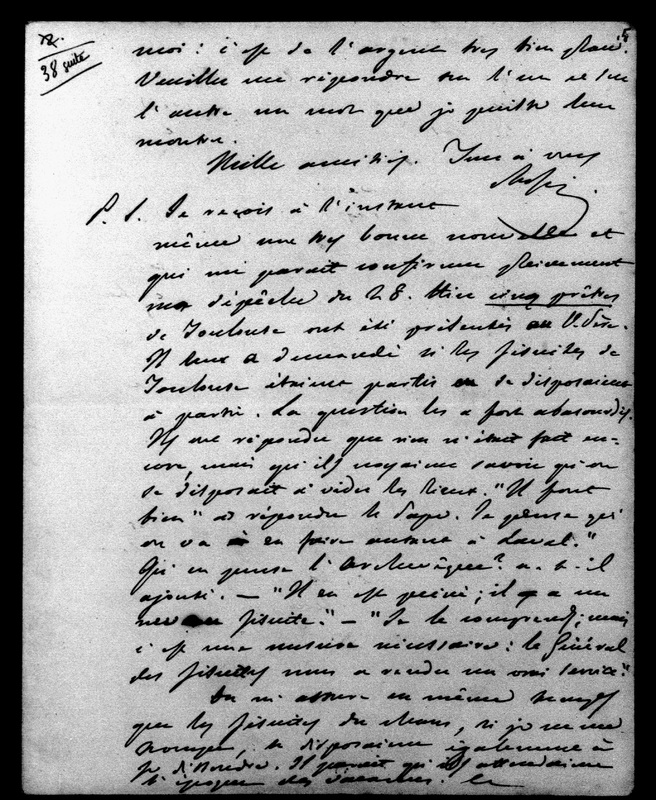 38 suite
5
moi : c'est de l'argent très bien placé.
Veuillez me répondre sur l'un et sur
l'autre un mot que je puisse leur
montrer.
Mille amitiés. Tout à vous
Rossi.
P. S. Je reçois à l'instant
même une très bonne nouvelle et
qui me parait confirmer pleinement
ma dépêche du 28. Hier cinq prêtres
de Toulouse ont été présentés au St. Père.
Il leur a demandé si les jésuites de
Toulouse étaient partis ou se disposaient
à partir. La question les a fort abasourdis.
Ils ont répondu que rien n'était fait en-
core, mais qu'ils croyaient savoir qu'on
se disposait à vider les lieux. "Ils font
bien" a répondu le Pape. Je pense qu'
on va en faire autant à Laval."
Qu'en pense l'Archevêque? a-t-il
ajouté. — "Il en est peiné; il a un
neveu jésuite." — "Je le comprends; mais
c'est une mesure nécessaire : le Général
des jésuites nous a rendu un vrai service."
On m'assure en même temps
que les jésuites du Mans, si je ne me
trompe, se disposaient également à
se dissoudre. Il parait qu'ils attendaient
l'époque des vacances.